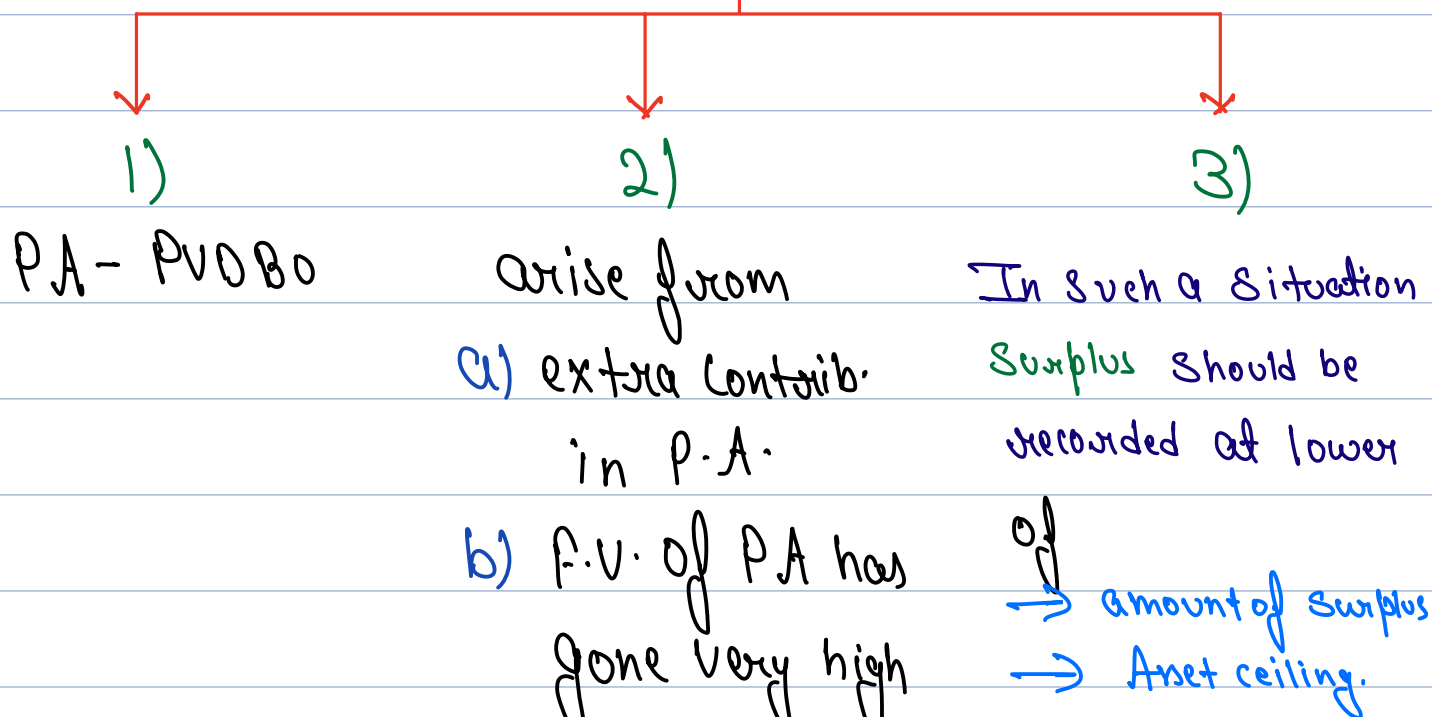 1)
PA - PVDBO
2)
arise from
a) extra contrib.
in P.A.
b) F.V. of PA has
gone very high
3)
In such a situation
Surplus should be
recorded at lower
of
→ amount of surplus
→ Asset ceiling.